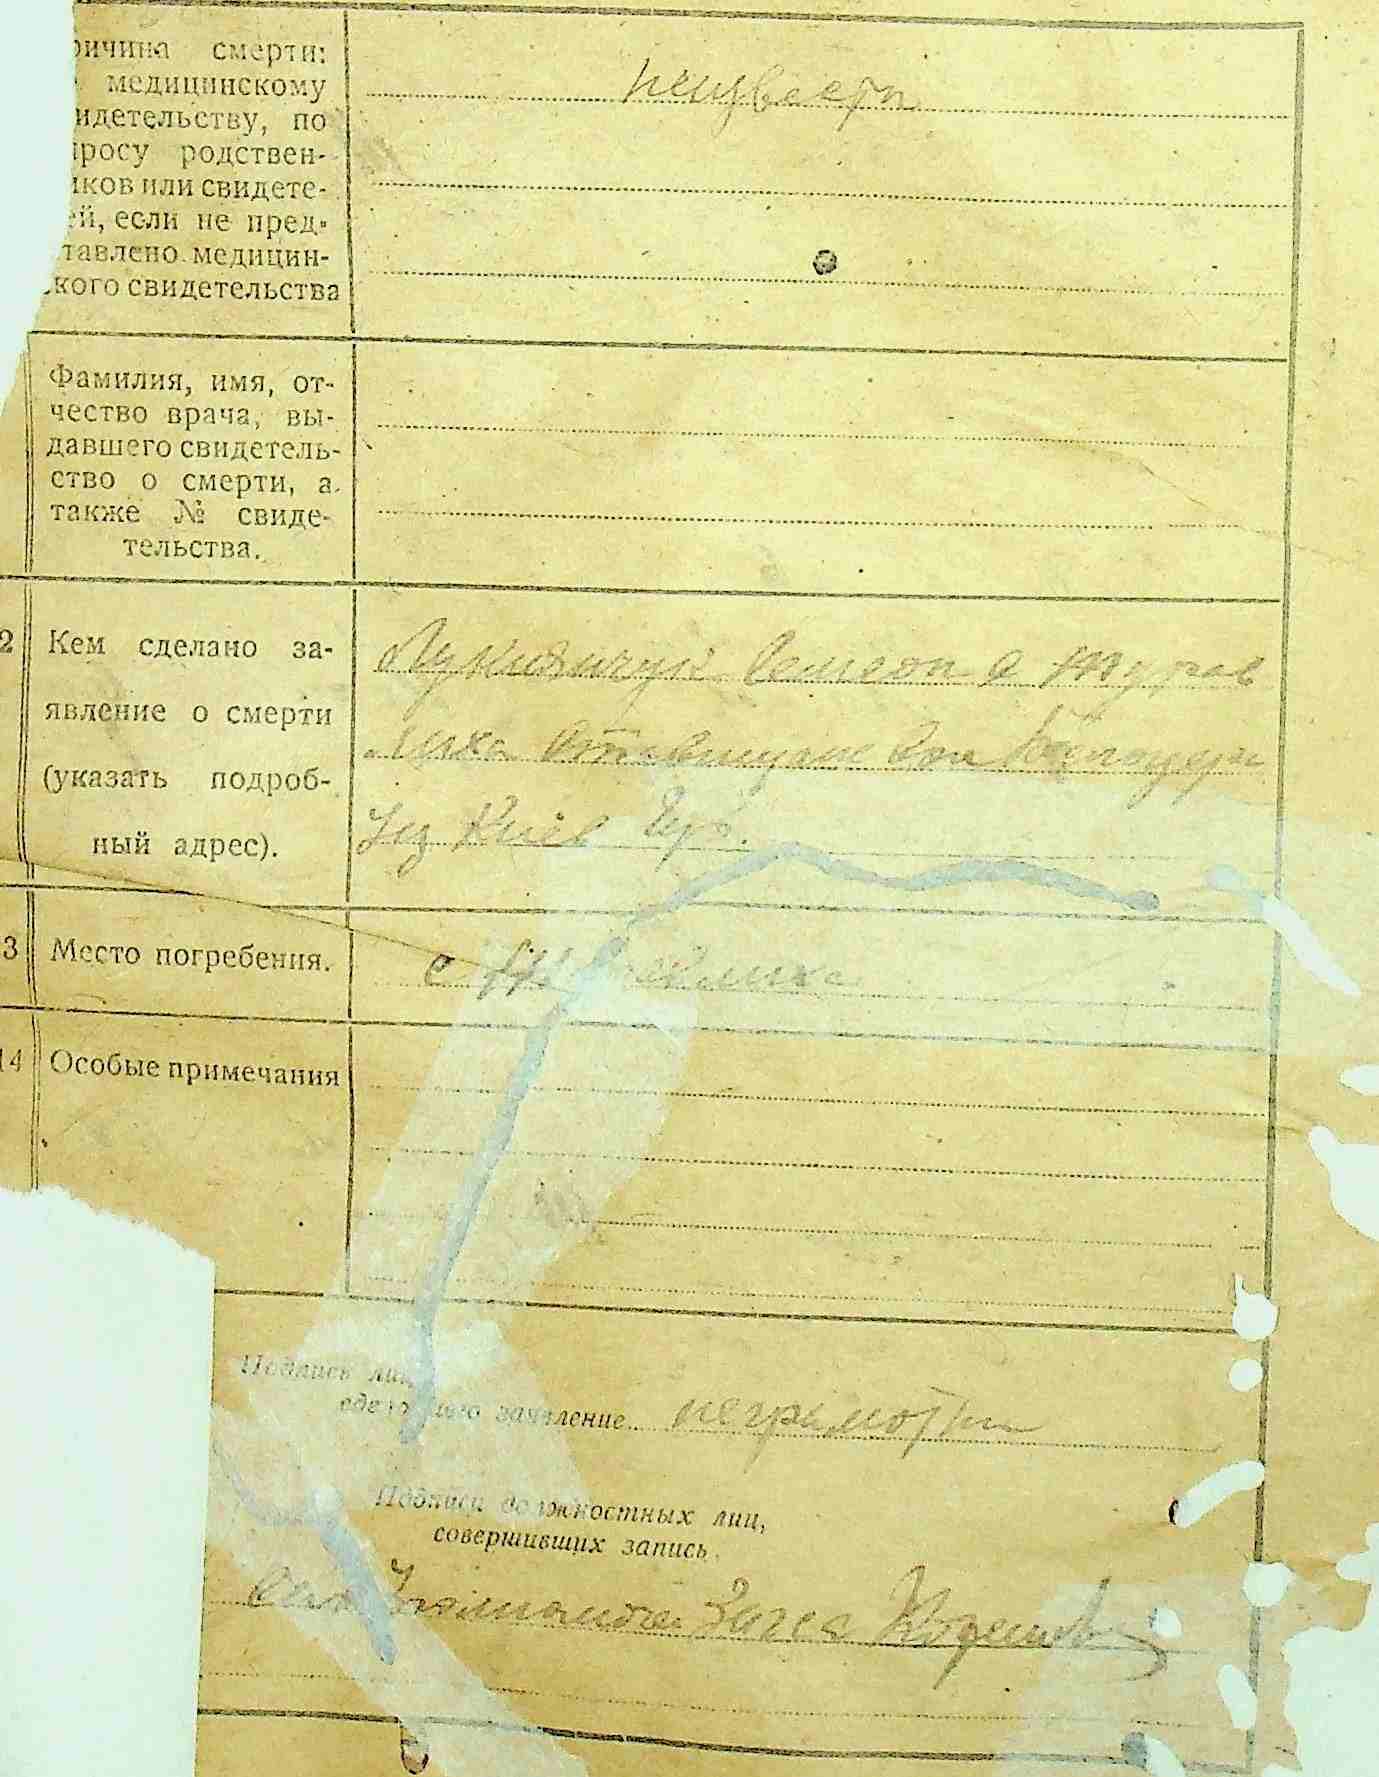 ричина смерти:
медицинскому
идетельству, по
просу родствен-
иков или свидете-
ей, если не пред-
тавлено медицин-
кого свидетельства
неизвестн
Фамилия, имя, от-
чество врача, вы-
давшего свидетель-
ство о смерти, а
также № свиде-
тельства.
2 Кем сделано за-
явление о смерти
(указать подроб-
ный адрес).
Семеон с Журав
лиха Ставищан Белоцерк
Уез Киев Губ.
3 Место погребения.
с
14 Особые примечания
Подпись лиц
сделавшего заявление неграмотн
Подписи должностных лиц,
совершивших запись.
Загса